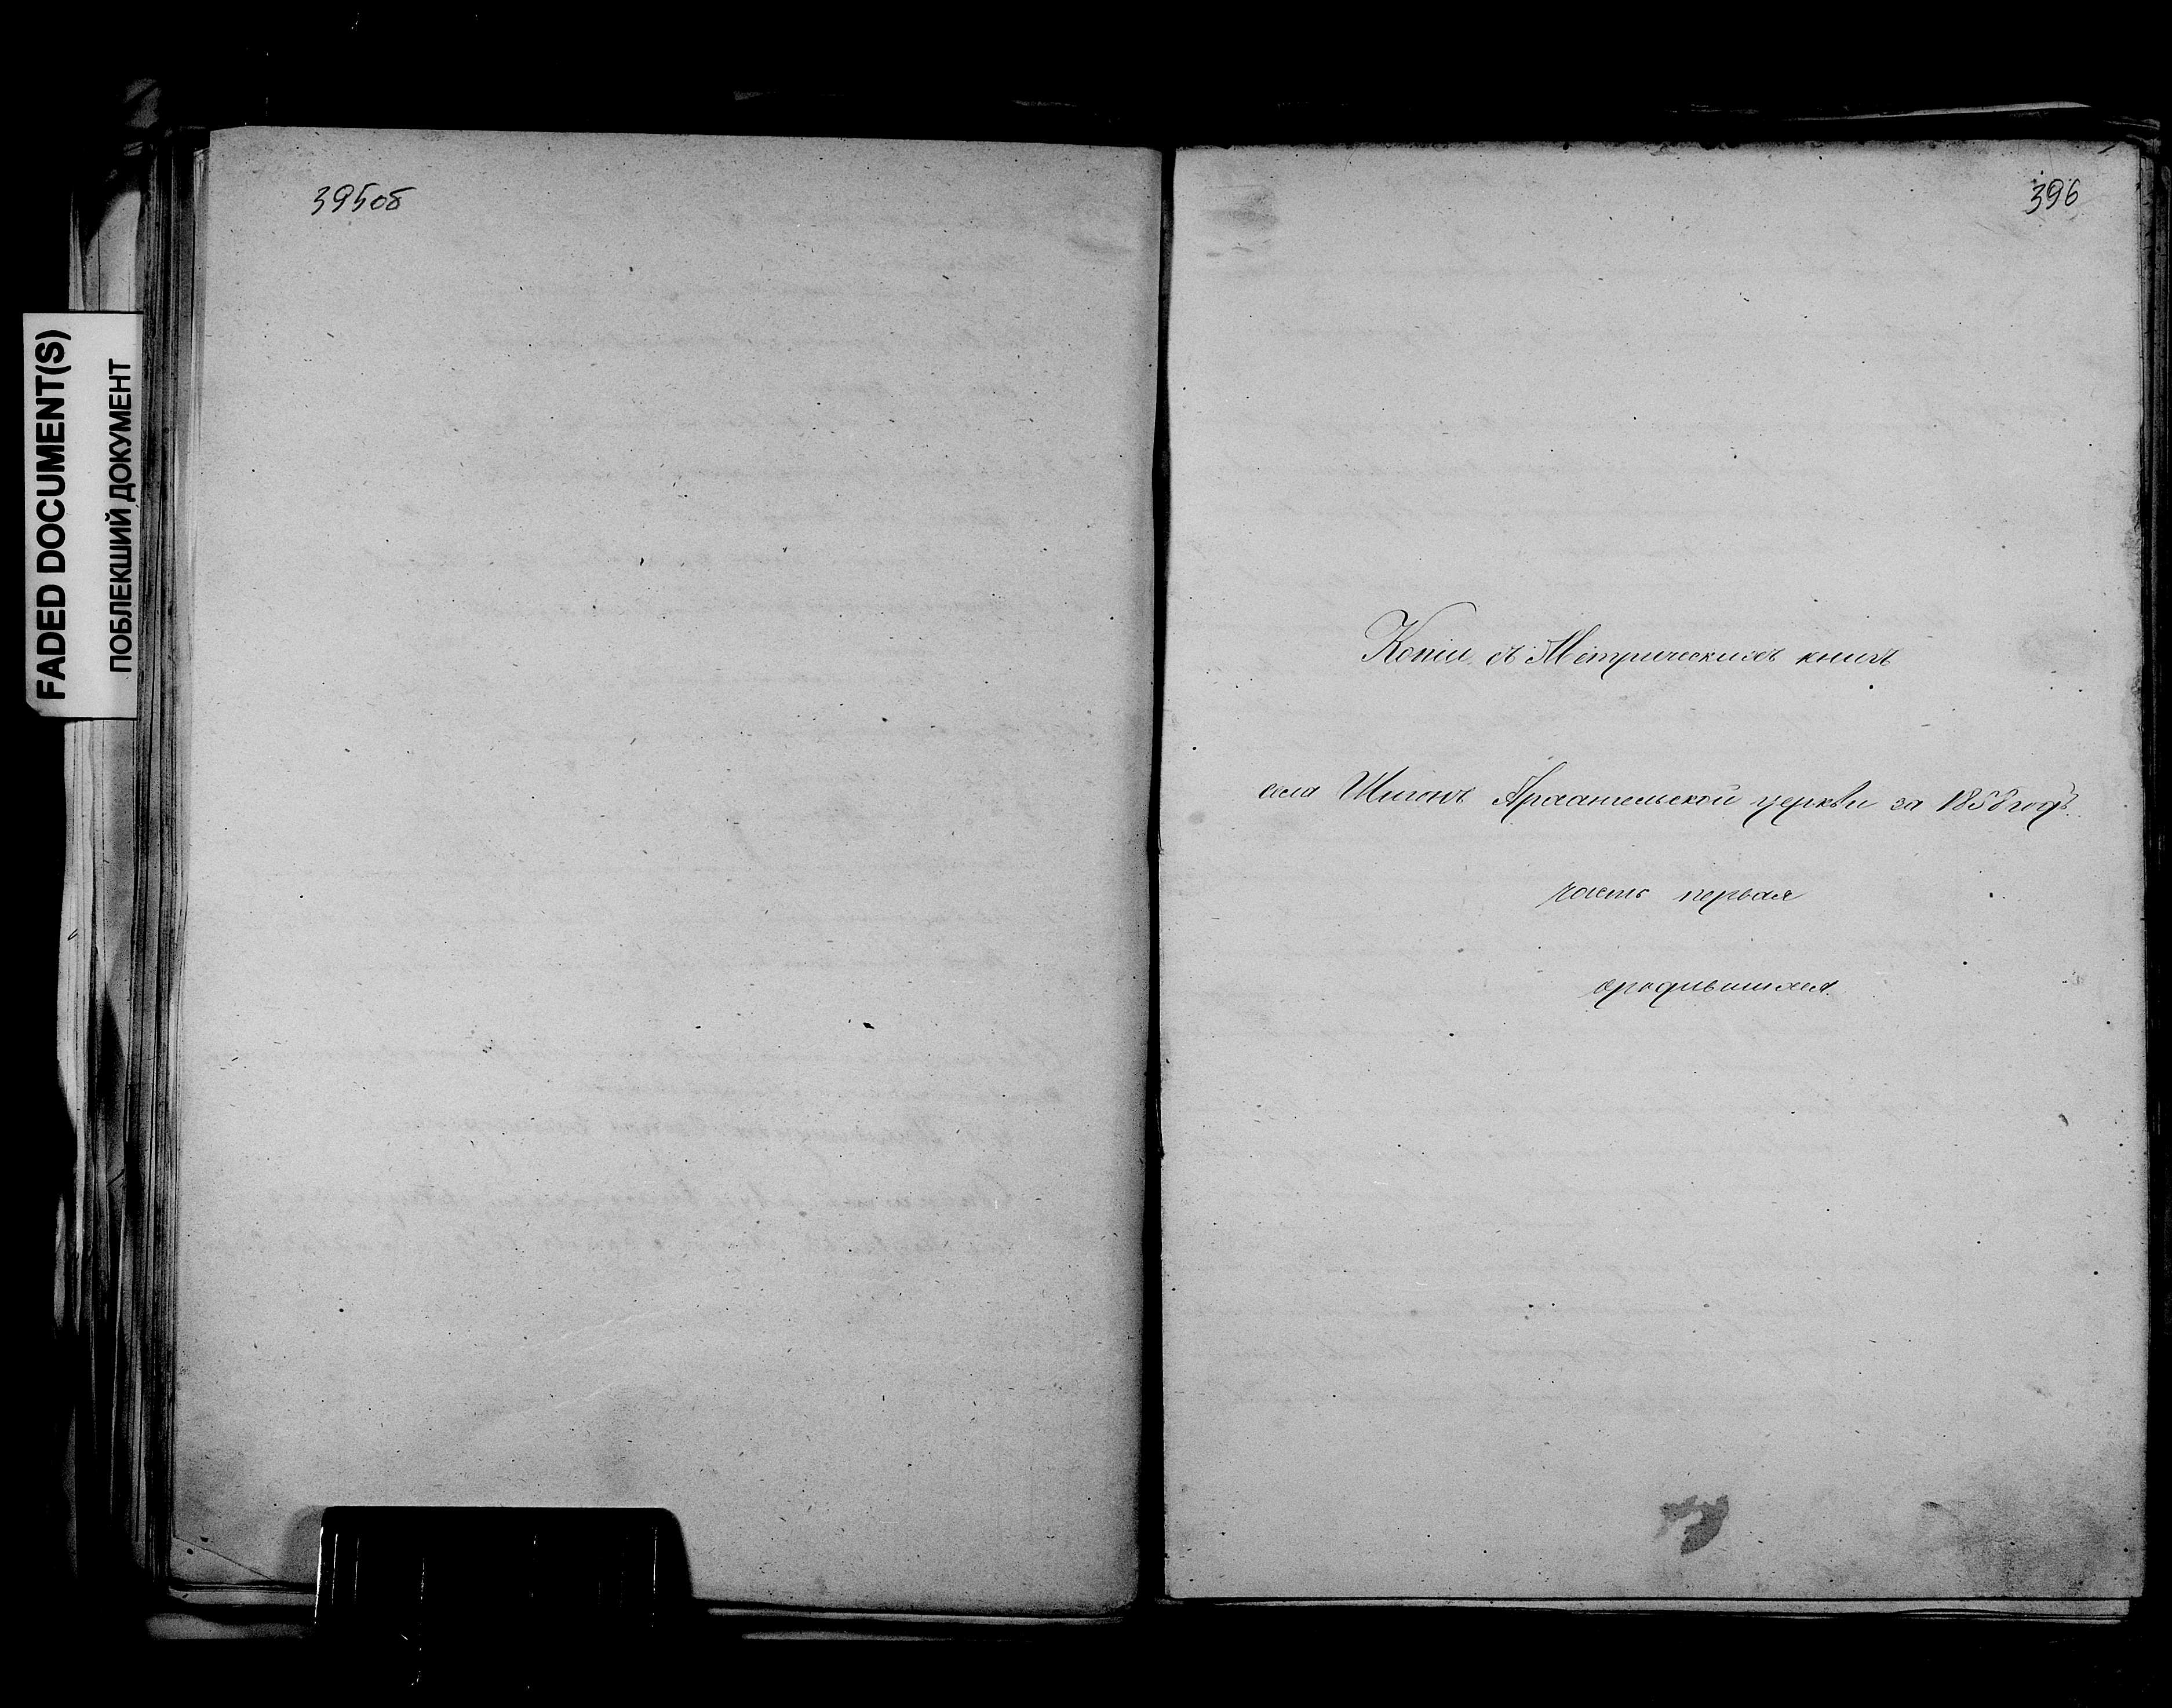 FADED DOCUMENT(S)
ПОБЛЕКШИЙ ДОКУМЕНТ
395об
396
Копіи съ Метрическихъ книгъ
села Шигонъ Архангельской церкви за 1858 годъ.
часть первая
ородившихся.